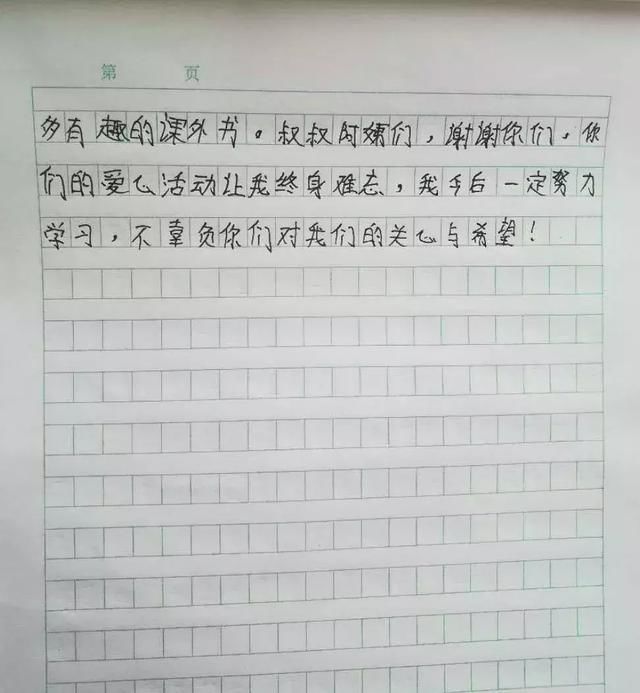 第 页
多有趣的课外书。叔叔阿姨们，谢谢你们，你
们的爱心活动让我终身难忘，我今后一定努力
学习，不辜负你们对我们的关心与希望！